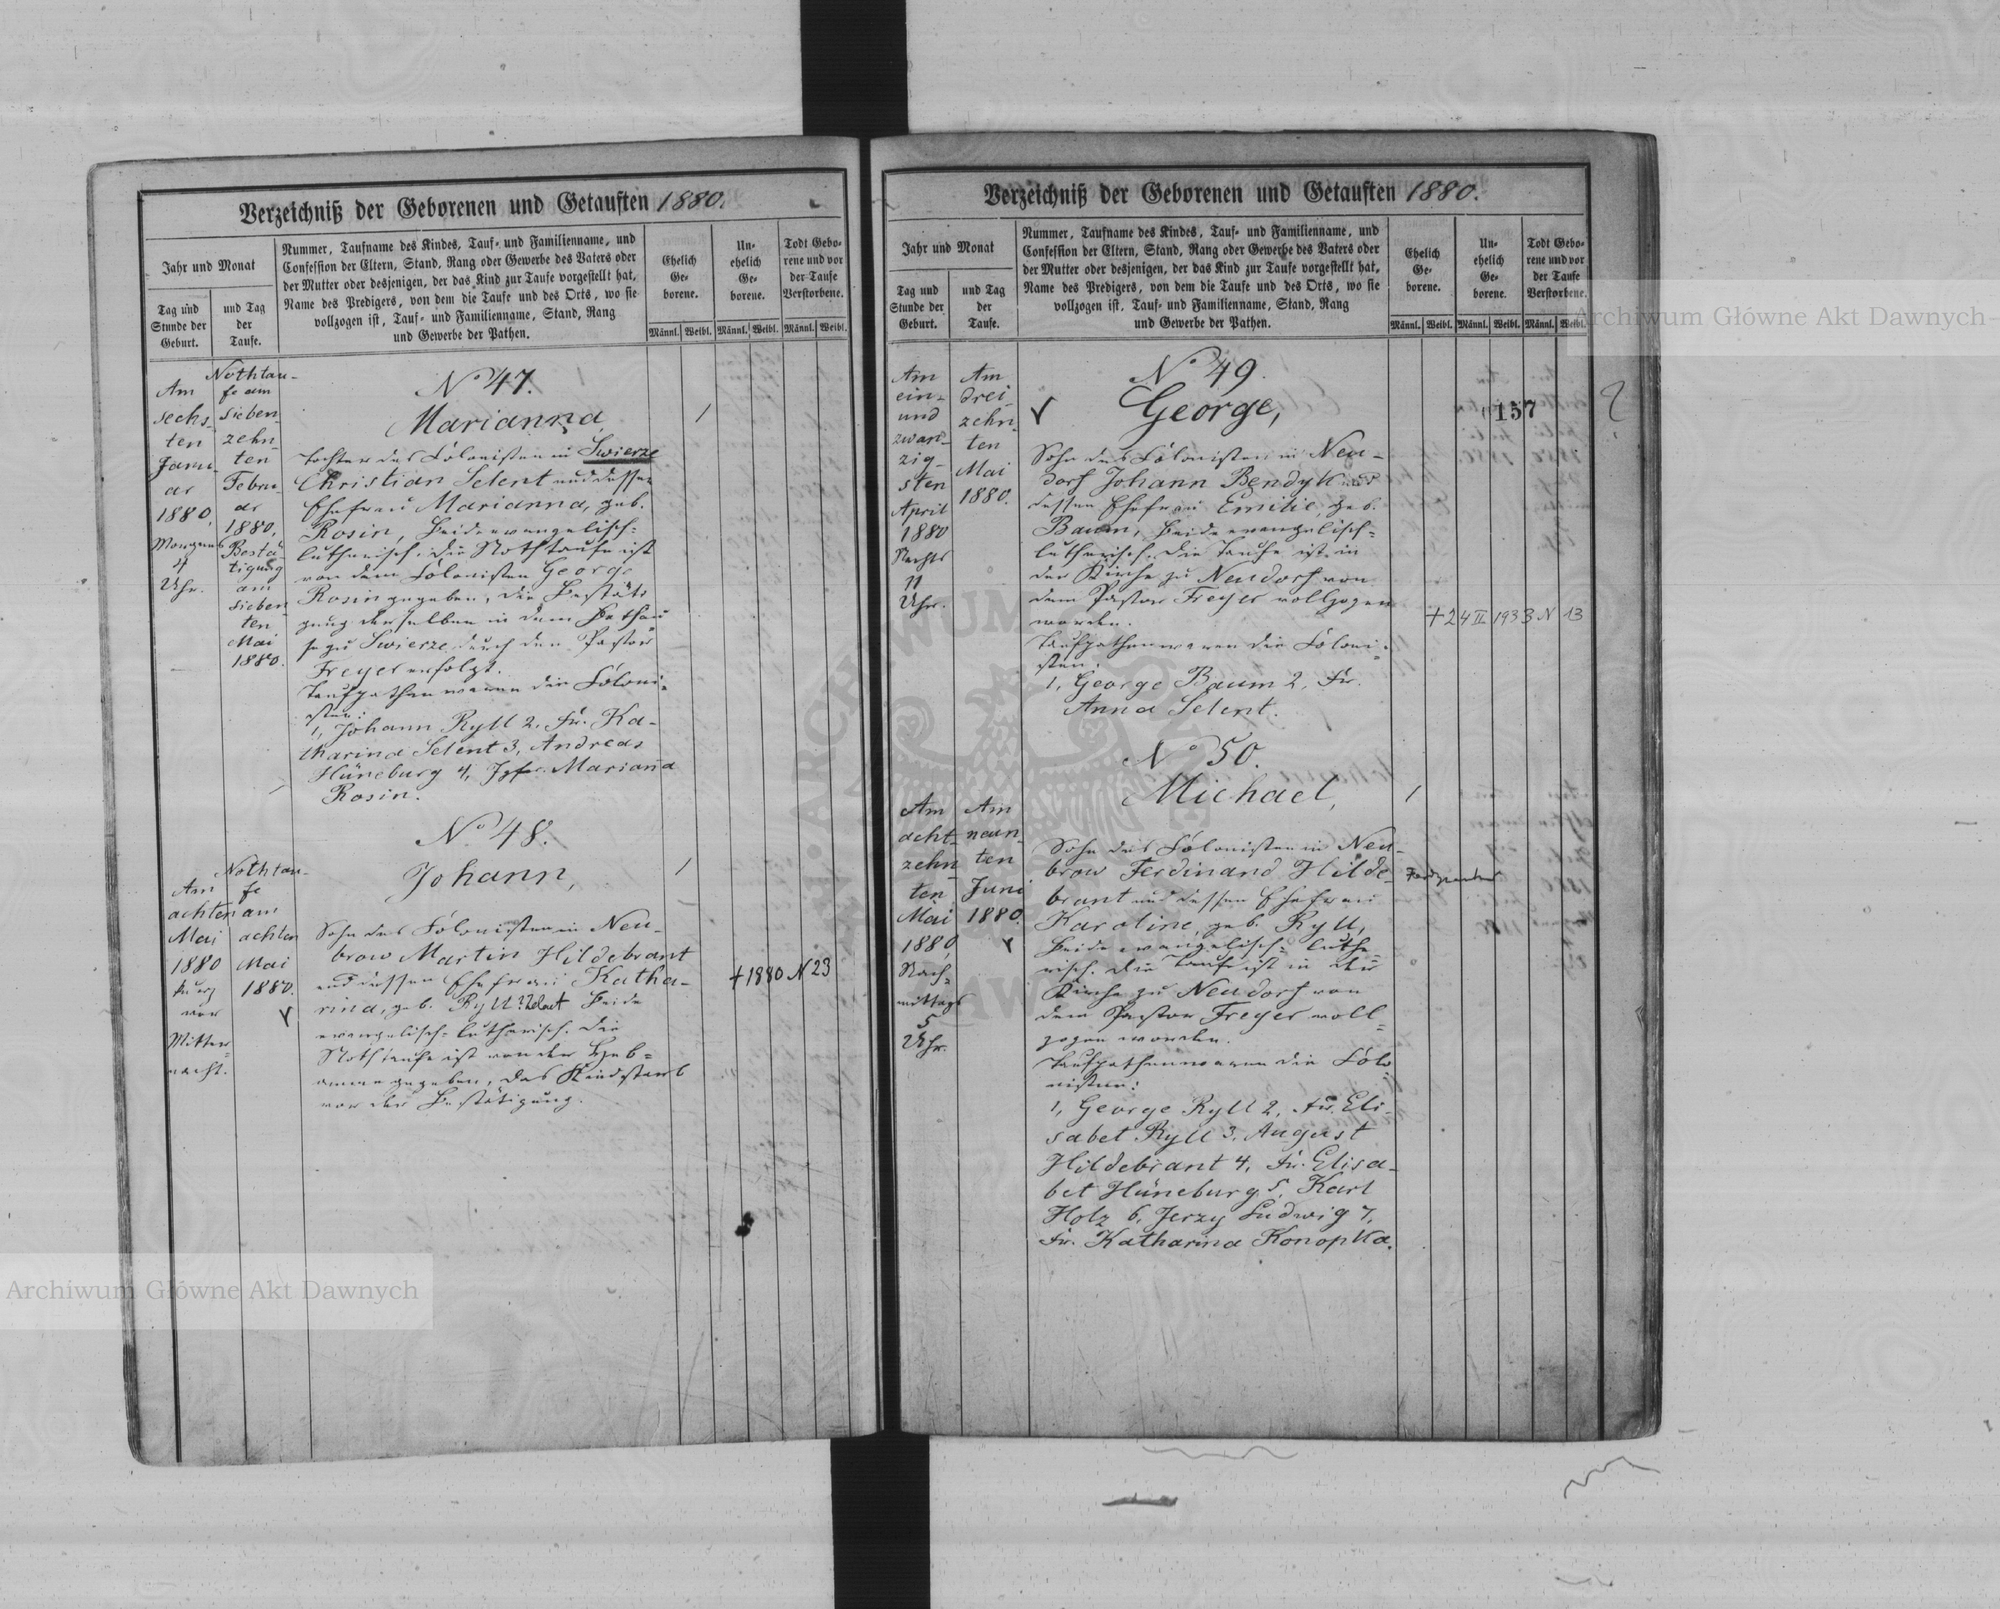 Verzeichniß der Geborenen und Getauften 1880.
Jahr und Monat
Tag und
Stunde der
Geburt.
und Tag
der
Taufe.
Nummer, Taufname des Kindes, Tauf- und Familienname, und
Confession der Eltern, Stand, Rang oder Gewerbe des Vaters oder
der Mutter oder desjenigen, der das Kind zur Taufe vorgestellt hat,
Name des Predigers, von dem die Taufe und des Orts, wo sie
vollzogen ist, Tauf- und Familienname, Stand, Rang
und Gewerbe der Pathen.
Ehelich
Ge-
borene.
Un-
ehelich
Ge-
borene.
Todt Gebo-
rene und vor
der Taufe
Verstorbene.
Männl. Weibl. Männl. Weibl. Männl. Weibl.
Am
sechs-
ten
Janu-
ar
1880,
Morgens
4
Uhr.
Nothtau-
fe am
sieben-
zehn-
ten
Febru-
ar
1880,
Bestä-
tigung
am
sieben-
ten
Mai
1880.
No 47.
Marianna,
Tochter des Colonisten in Swierze
Christian Selent und dessen
Ehefrau Marianna, geb.
Rosin, Beide evangelisch-
lutherisch. Die Nothtaufe ist
von dem Colonisten George
Rosin gegeben, die Bestäti-
gung derselben in dem Bethau-
se zu Swierze durch den Pastor
Freyer erfolgt.
Taufpathen waren die Coloni-
sten:
1, Johann Ryll 2, Fr. Ka-
tharina Selent 3, Andreas
Hüneburg 4, Jgfr. Marianna
Rosin.
Am
achten
Mai
1880
kurz
vor
Mitter-
nacht.
Nothtau-
fe
am
achten
Mai
1880.
No 48.
Johann,
Sohn des Colonisten in Neu-
brow Martin Hildebrant
und dessen Ehefrau Katha-
rina, geb. Ryll Beide
evangelisch-lutherisch. Die
Nothtaufe ist von der Heb-
amme gegeben, das Kind starb
vor der Bestätigung.
+ 1880 N 23
Verzeichniß der Geborenen und Getauften 1880.
Jahr und Monat
Tag und
Stunde der
Geburt.
und Tag
der
Taufe.
Nummer, Taufname des Kindes, Tauf- und Familienname, und
Confession der Eltern, Stand, Rang oder Gewerbe des Vaters oder
der Mutter oder desjenigen, der das Kind zur Taufe vorgestellt hat,
Name des Predigers, von dem die Taufe und des Orts, wo sie
vollzogen ist, Tauf- und Familienname, Stand, Rang
und Gewerbe der Pathen.
Ehelich
Ge-
borene.
Un-
ehelich
Ge-
borene.
Todt Gebo-
rene und vor
der Taufe
Verstorbene.
Männl. Weibl. Männl. Weibl. Männl. Weibl.
157
?
Am
ein-
und
zwan-
zig-
sten
April
1880
Nachts
11
Uhr.
Am
drei-
zehn-
ten
Mai
1880.
No 49.
George,
Sohn des Colonisten in Neu-
dorf Johann Bendyk und
dessen Ehefrau Emilie, geb.
Baum, Beide evangelisch-
lutherisch. Die Taufe ist in
der Kirche zu Neudorf von
dem Pastor Freyer vollzogen
worden.
Taufpathen waren die Coloni-
sten:
1, George Baum 2, Fr.
Anna Selent.
+ 24 II 1933 N 13
Am
acht-
zehn-
ten
Mai
1880,
Nach-
mittags
5
Uhr.
Am
neun-
ten
Juni
1880.
No 50.
Michael,
Sohn des Colonisten in Neu-
brow Ferdinand Hilde-
brant und dessen Ehefrau
Karoline, geb. Ryll,
Beide evangelisch-luthe-
risch. Die Taufe ist in der
Kirche zu Neudorf von
dem Pastor Freyer voll-
zogen worden.
Taufpathen waren die Colo-
nisten:
1, George Ryll 2, Fr. Eli-
sabet Ryll 3, August
Hildebrant 4, Fr. Elisa-
bet Hüneburg 5, Karl
Holz 6, Jerzy Ludwig 7,
Fr. Katharina Konopka.
Archiwum Główne Akt Dawnych
Archiwum Główne Akt Dawnych